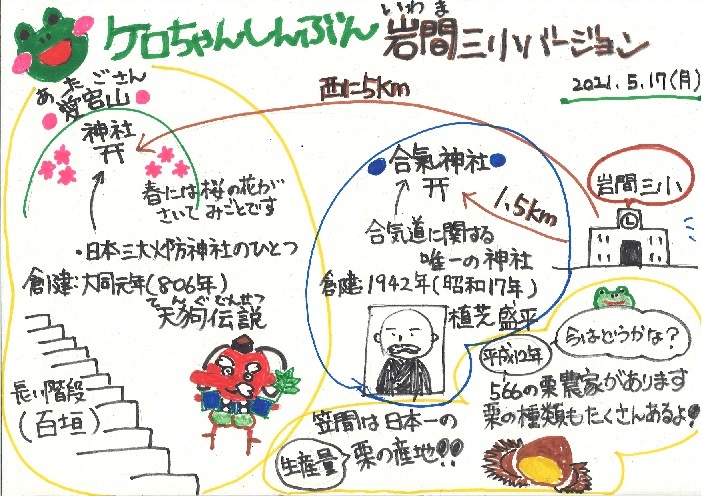 ケロちゃんしんぶん 岩間三小バージョン
いわま
2021.5.17(月)
あたごさん
愛宕山
神社
春には桜の花が
さいてみごとです
・日本三大火防神社のひとつ
創建:大同元年(806年)
てんぐでんせつ
天狗伝説
長い階段
(百垣)
西に5km
合氣神社
1.5km
岩間三小
合気道に関する
唯一の神社
創建:1942年(昭和17年)
植芝盛平
今はどうかな?
平成12年
566の栗農家があります
栗の種類もたくさんあるよ!
笠間は日本一の
栗の産地!!
生産量